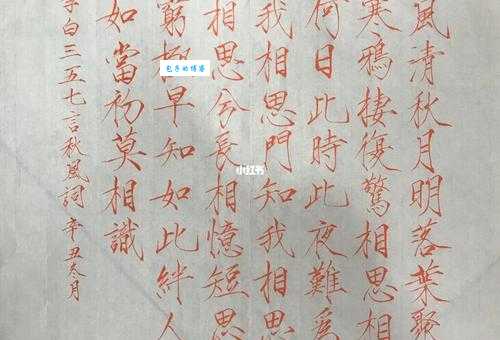 風清秋月明落葉聚
寒鴉棲復驚相思相
何日此時此夜難為
我相思門知我相思
相思兮長相憶短思
窮極早知如此絆人
如當初莫相識
李白三五七言秋風詞 辛丑冬月
小红书